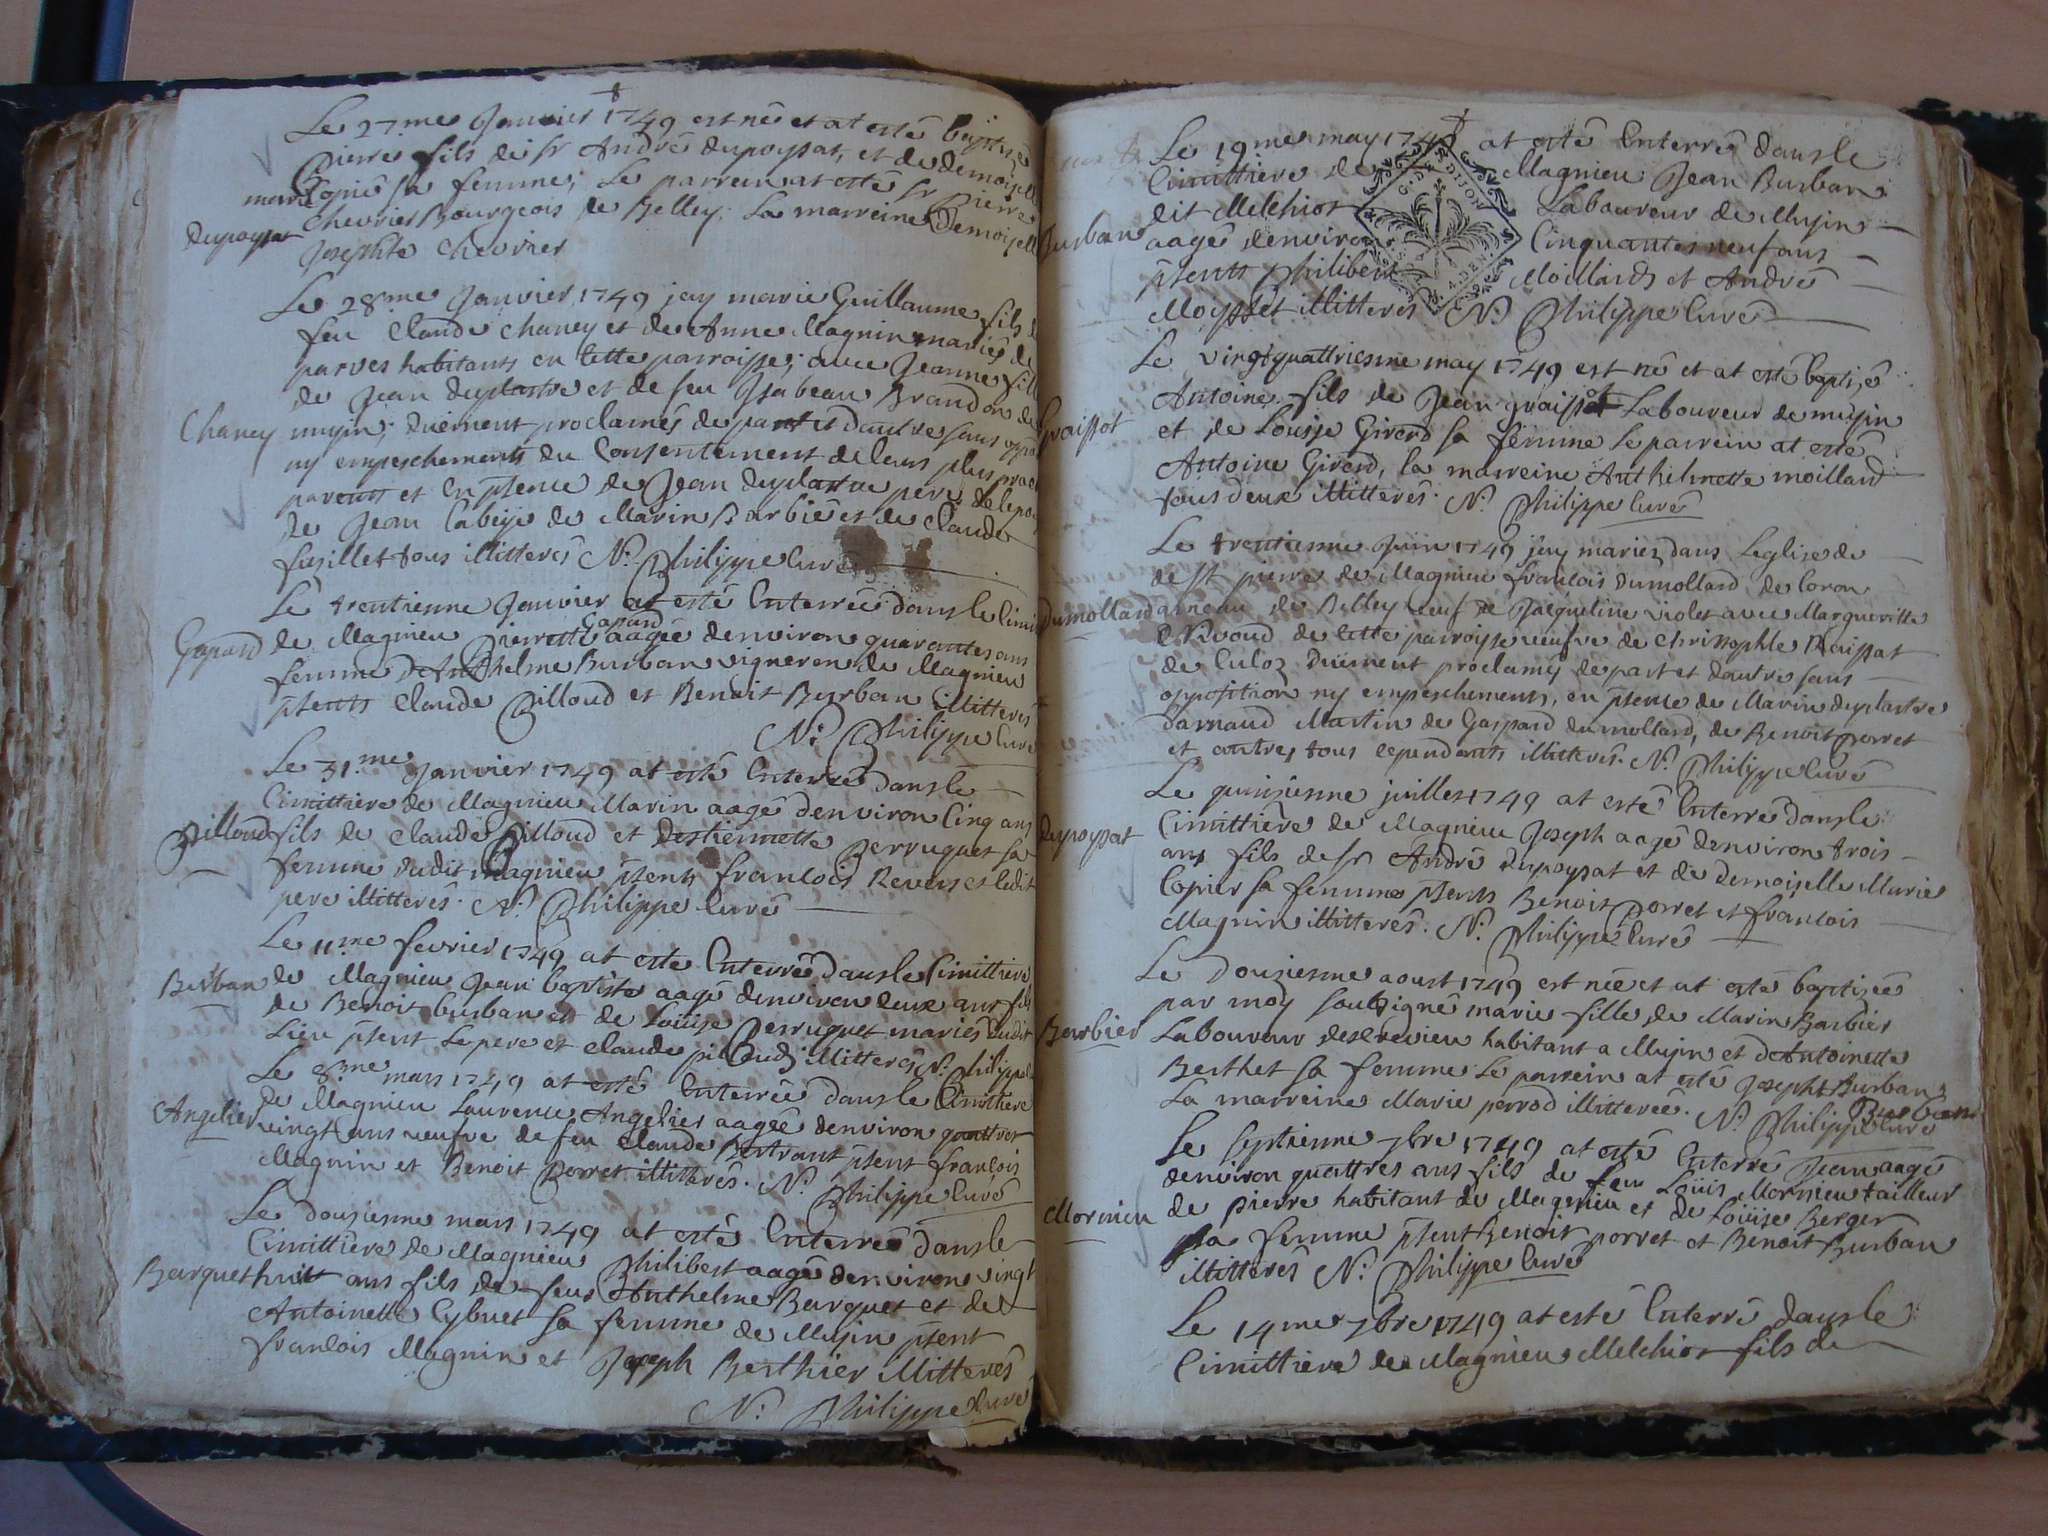 Le 27.me Janvier 1749 est né et at esté baptisé
Pierre fils de sr André dupoypat, et de demoiselle
marie Copié sa femme; Le parrein at esté sr Pierre
Chevrier Bourgeois de Belley; La marreine Demoiselle
dupoypat
Josephte Chevrier
Le 28.me Janvier 1749 jay marié Guillaume fils de
feu Claude Chaney et de Anne Magnin mariés de
parves habitants en Cette parroisse; avec Jeanne fille
de Jean duplastre et de feu Isabeau Brandon de
Chaney
mujin; duëment proclamés de part et d'autre sans oppo
ny empeschements du Consentement de leurs plus proch
parents et en pŝence de Jean duplastre pere de lepou
de Jean Cabeije de Marin Barbié et de Claude
fusillet tous illitterés N. Philippe Curé
Le trentienne Janvier at esté Enterrée dans le Cimi
Gapand
de Magnieu Pierrette Gapand aagée denviron quarantes ans
femme d'Anthelme Burban vigneron de Magnieu
pŝents Claude Pilloud et Benoit Burban illitterés
N. Philippe Curé
Le 31.me Janvier 1749 at esté Enterré dans le
Cimittiere de Magnieu Marin aagé denviron Cinq ans
Pilloud
fils de Claude Pilloud et destiennette Perruquet sa
femme dudit Magnieu pŝents francois Revers et ledit
pere illitterés. N. Philippe Curé
Le 11.me fevrier 1749 at esté Enterré dans le Cimittiere
Burban
de Magnieu Jean baptiste aagé denviron deux ans fils
de Benoit burban et de Louïse Perruquet mariés dudit
Lieu pŝent Le pere et Claude pilloud illitterés N. Philippe
Le 8.me mars 1749 at esté Enterrée dans le Cimittiere
de Magnieu Laurence Angelier aagée denviron quattres
Angelier
vingt ans veufve de feu Claude Bertrant pŝent françois
Magnin et Benoit Porret illitterés. N. Philippe Curé
Le dousienne mars 1749 at esté Enterré dans le
Cimittiere de Magnieu Philibert aagé denviron vingt
Barquet
huit ans fils de feu Anthelme Barquet et de
Antoinette Cybuet sa femme de Mujin pŝent
francois Magnin et Joseph Berthier illitterés
N. Philippe Curé
Le 19.me may 1749 at esté Enterré dans le
Cimittiere de Magnieu Jean Burban
dit Melchior Laboureur de Mujin
Burban
aagé denviron Cinquantes neuf ans
pŝents Philibert Moillard et André
Moysset illitterés N. Philippe Curé
G. DE DIJON
Le vingtquattriesme may 1749 est né et at esté baptisé
Antoine fils de Jean graissot Laboureur de mujin
Graissot
et de Louise Girerd sa femme Le parrein at esté
Antoine Girerd, la marreine Anthelmette moillard
tous deux illitterés. N. Philippe Curé
Le trentienne Juin 1749 jay mariez dans Leglise de
de st pierre de Magnieu francois dumollard de Coron
Dumollard
ameau de Belley veuf de Jacqueline violet avec Margueritte
de Cette parroisse veufve de Christophle Raissat
de Culoz Duëment proclamés de part et d'autre sans
opposition ny empeschements, en pŝence de Marin duplastre
d'arnaud Martin de Gaspard dumollard, de Benoit Porret
et autres, tous cependants illitterés. N. Philippe Curé
Le quinsienne juillet 1749 at esté Enterré dans le
Cimittiere de Magnieu Joseph aagé denviron trois
dupoypat
ans fils de sr André dupoypat et de Demoiselle Marie
Copier sa femme pŝents Benoit Porret et francois
Magnin illitterés. N. Philippe Curé
Le Dousiesme aoust 1749 est née et at esté baptisée
par moy soubsigné marie fille de Marin Barbier
Barbier
Laboureur habitant a Mujin et d'Antoinette
Berthet sa femme Le parrein at esté Joseph Burban
La marreine Marie perrod illitterée. N. Philippe Curé
Burban
Le Septienne 7bre 1749 at esté Enterré Jean aagé
denviron quattres ans fils de feu Loüis Mornieu tailleur
Mornieu
de pierre habitant de Magnieu et de Loüise Berger
sa femme pŝent Benoit porret et Benoit Burban
illitterés N. Philippe Curé
Le 14.me 7bre 1749 at esté Enterré dans le
Cimittiere de Magnieu Melchior fils de